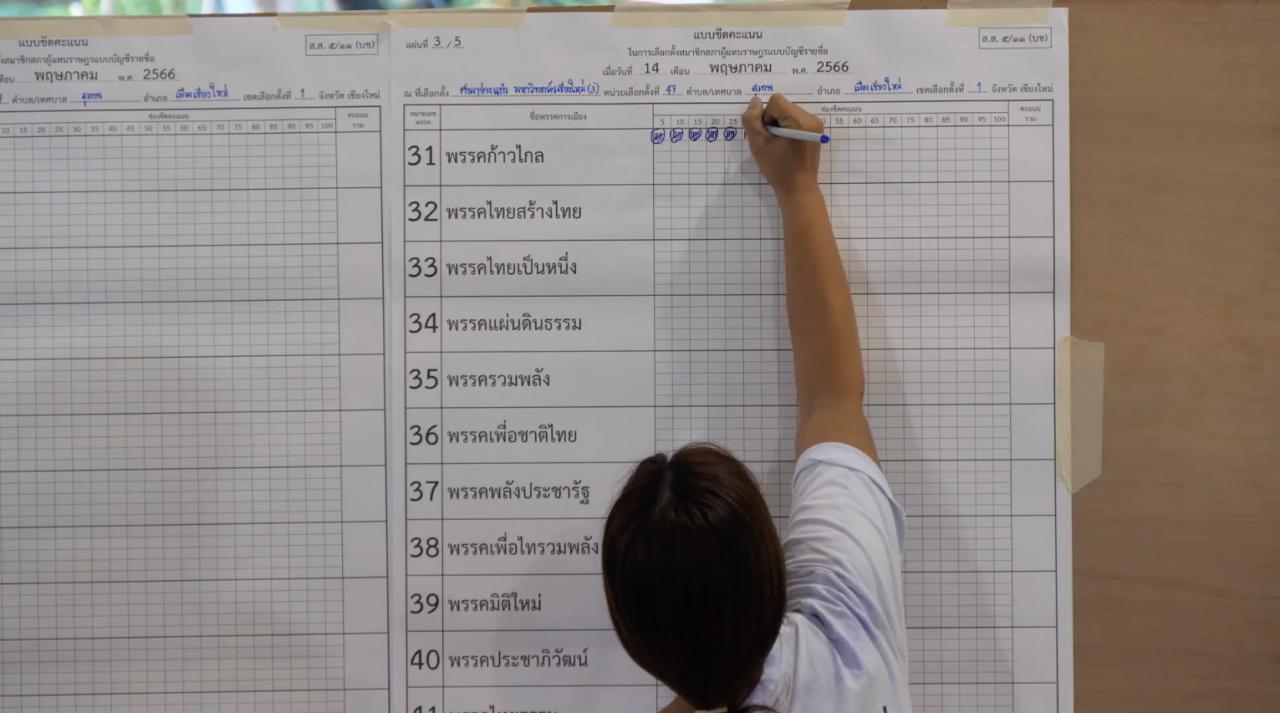 แบบขีดคะแนน
ส.ส. ๕/๑๑ (บช)
สมาชิกสภาผู้แทนราษฎรแบบบัญชีรายชื่อ
พฤษภาคม พ.ศ. 2566
ตำบล/เทศบาล สุเทพ อำเภอ เมืองเชียงใหม่ เขตเลือกตั้งที่ 1 จังหวัด เชียงใหม่
ช่องขีดคะแนน
คะแนนรวม
10 15 20 25 30 35 40 45 50 55 60 65 70 75 80 85 90 95 100
แผ่นที่ 3 / 5
แบบขีดคะแนน
ส.ส. ๕/๑๑ (บช)
ในการเลือกตั้งสมาชิกสภาผู้แทนราษฎรแบบบัญชีรายชื่อ
เมื่อวันที่ 14 เดือน พฤษภาคม พ.ศ. 2566
ณ ที่เลือกตั้ง ศาลาอ่างแก้ว มหาวิทยาลัยเชียงใหม่ (3) หน่วยเลือกตั้งที่ 47 ตำบล/เทศบาล สุเทพ อำเภอ เมืองเชียงใหม่ เขตเลือกตั้งที่ 1 จังหวัด เชียงใหม่
หมายเลขพรรค ชื่อพรรคการเมือง ช่องขีดคะแนน คะแนนรวม
5 10 15 20 25 55 60 65 70 75 80 85 90 95 100
31 พรรคก้าวไกล
32 พรรคไทยสร้างไทย
33 พรรคไทยเป็นหนึ่ง
34 พรรคแผ่นดินธรรม
35 พรรครวมพลัง
36 พรรคเพื่อชาติไทย
37 พรรคพลังประชารัฐ
38 พรรคเพื่อไทรวมพลัง
39 พรรคมิติใหม่
40 พรรคประชาภิวัฒน์